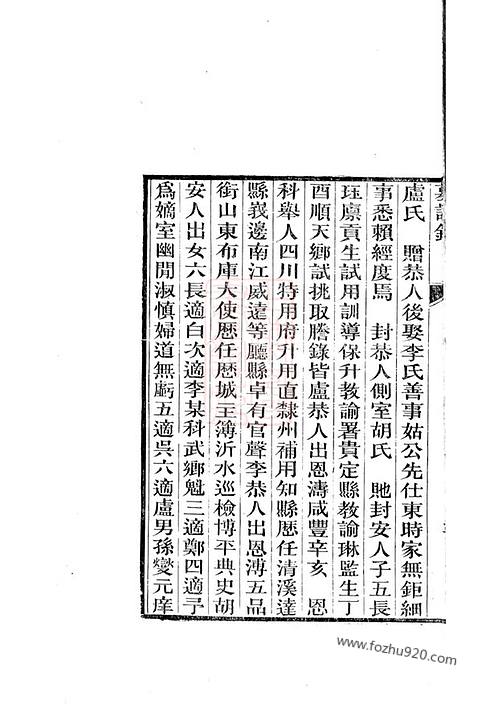 盧氏　贈恭人後娶李氏善事姑公先仕東時家無鉅細
事悉賴經度焉　封恭人側室胡氏　貤封安人子五長
珏廪貢生試用訓導保升教諭署貴定縣教諭琳監生丁
酉順天鄉試挑取謄錄皆盧恭人出恩濤咸豐辛亥　恩
科舉人四川特用府升用直隸州補用知縣歷任清溪達
縣峩邊南江威遠等廳縣卓有官聲李恭人出恩溥五品
銜山東布庫大使歷任歷城主簿沂水巡檢博平典史胡
安人出女六長適白次適李某科武鄉魁三適鄭四適予
爲嫡室幽閒淑慎婦道無虧五適吳六適盧男孫燮元庠
www.fozhu920.com